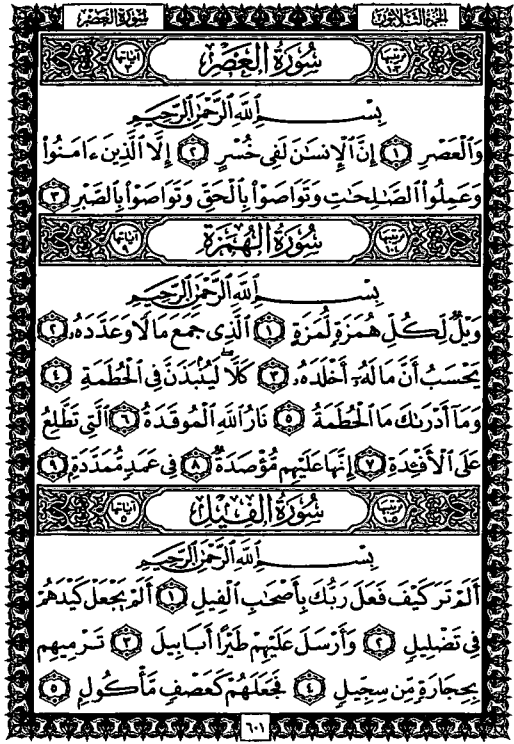 سُورَةُ العَصْرِ الجُزْءُ الثَّلَاثُونَ
آياتها ٣ سُورَةُ العَصْرِ ترتيبها ١٠٣
بِسْمِ ٱللَّهِ ٱلرَّحْمَٰنِ ٱلرَّحِيمِ
وَٱلْعَصْرِ ١ إِنَّ ٱلْإِنسَٰنَ لَفِى خُسْرٍ ٢ إِلَّا ٱلَّذِينَ ءَامَنُوا۟
وَعَمِلُوا۟ ٱلصَّٰلِحَٰتِ وَتَوَاصَوْا۟ بِٱلْحَقِّ وَتَوَاصَوْا۟ بِٱلصَّبْرِ ٣
آياتها ٩ سُورَةُ الهُمَزَةِ ترتيبها ١٠٤
بِسْمِ ٱللَّهِ ٱلرَّحْمَٰنِ ٱلرَّحِيمِ
وَيْلٌ لِّكُلِّ هُمَزَةٍ لُّمَزَةٍ ١ ٱلَّذِى جَمَعَ مَالًا وَعَدَّدَهُۥ ٢
يَحْسَبُ أَنَّ مَالَهُۥٓ أَخْلَدَهُۥ ٣ كَلَّا ۖ لَيُنۢبَذَنَّ فِى ٱلْحُطَمَةِ ٤
وَمَآ أَدْرَىٰكَ مَا ٱلْحُطَمَةُ ٥ نَارُ ٱللَّهِ ٱلْمُوقَدَةُ ٦ ٱلَّتِى تَطَّلِعُ
عَلَى ٱلْأَفْـِٔدَةِ ٧ إِنَّهَا عَلَيْهِم مُّؤْصَدَةٌ ٨ فِى عَمَدٍ مُّمَدَّدَةٍۭ ٩
آياتها ٥ سُورَةُ الفِيلِ ترتيبها ١٠٥
بِسْمِ ٱللَّهِ ٱلرَّحْمَٰنِ ٱلرَّحِيمِ
أَلَمْ تَرَ كَيْفَ فَعَلَ رَبُّكَ بِأَصْحَٰبِ ٱلْفِيلِ ١ أَلَمْ يَجْعَلْ كَيْدَهُمْ
فِى تَضْلِيلٍ ٢ وَأَرْسَلَ عَلَيْهِمْ طَيْرًا أَبَابِيلَ ٣ تَرْمِيهِم
بِحِجَارَةٍ مِّن سِجِّيلٍ ٤ فَجَعَلَهُمْ كَعَصْفٍ مَّأْكُولٍۭ ٥
٦٠١